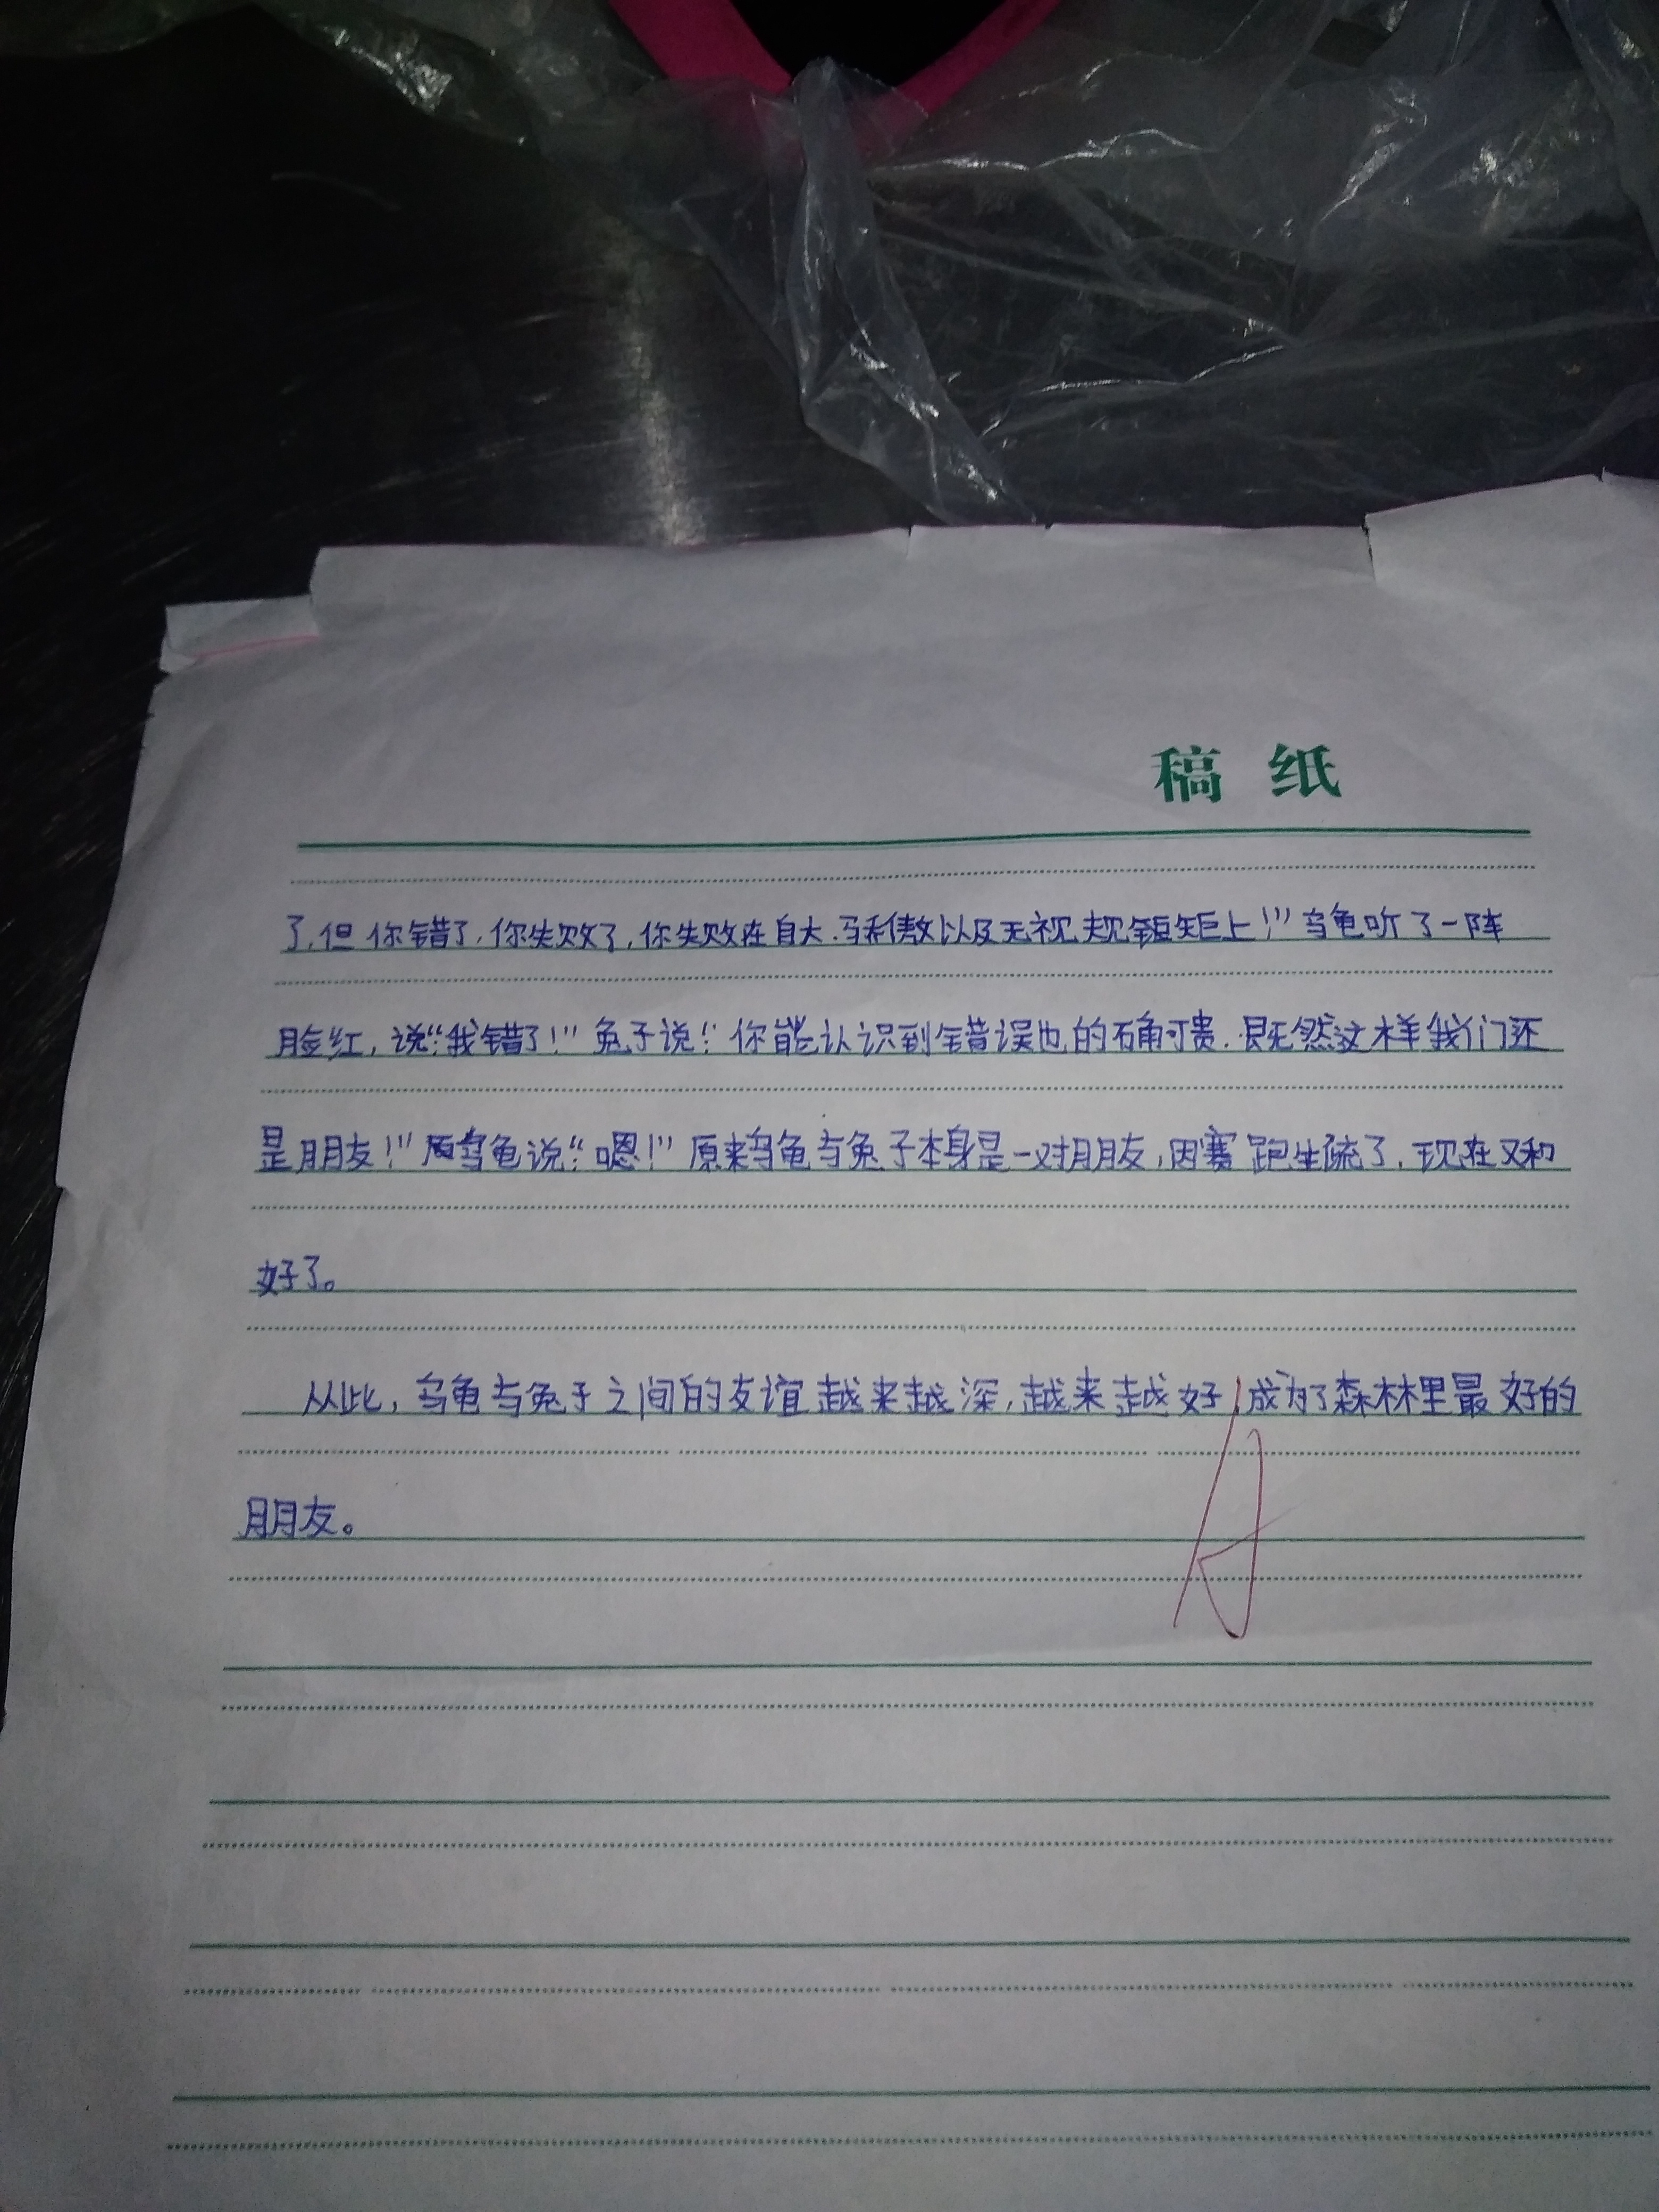 稿 纸
了,但你错了,你失败了,你失败在自大.骄傲以及无视规矩上!”乌龟听了一阵
脸红,说:“我错了!”兔子说:“你能认识到错误也的确可贵.既然这样我们还
是朋友!”乌龟说:“嗯!”原来乌龟与兔子本身是一对朋友,因赛跑生疏了.现在又和
好了。
从此,乌龟与兔子之间的友谊越来越深,越来越好,成为了森林里最好的
朋友。
A